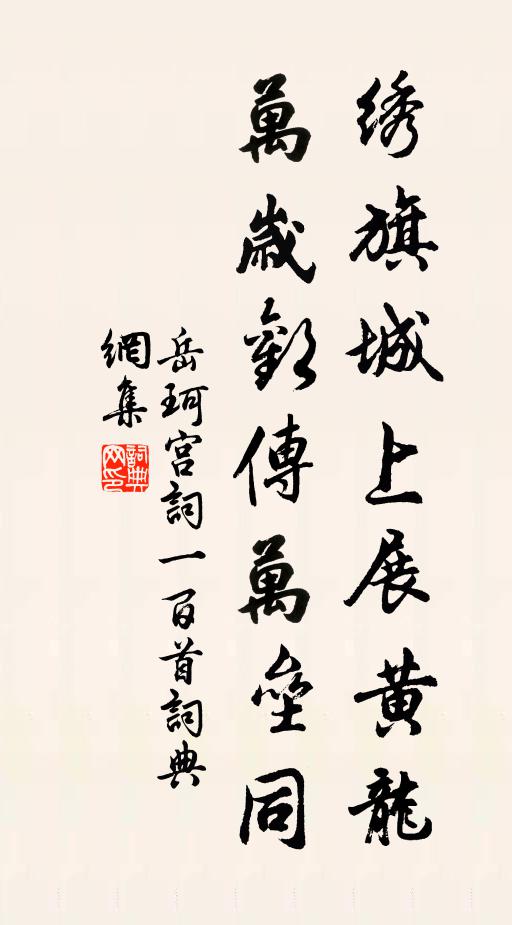 绣旗城上展黄龍
萬歲歡傳萬壘同
岳珂宫詞一百首詞典
網集
詞典網印